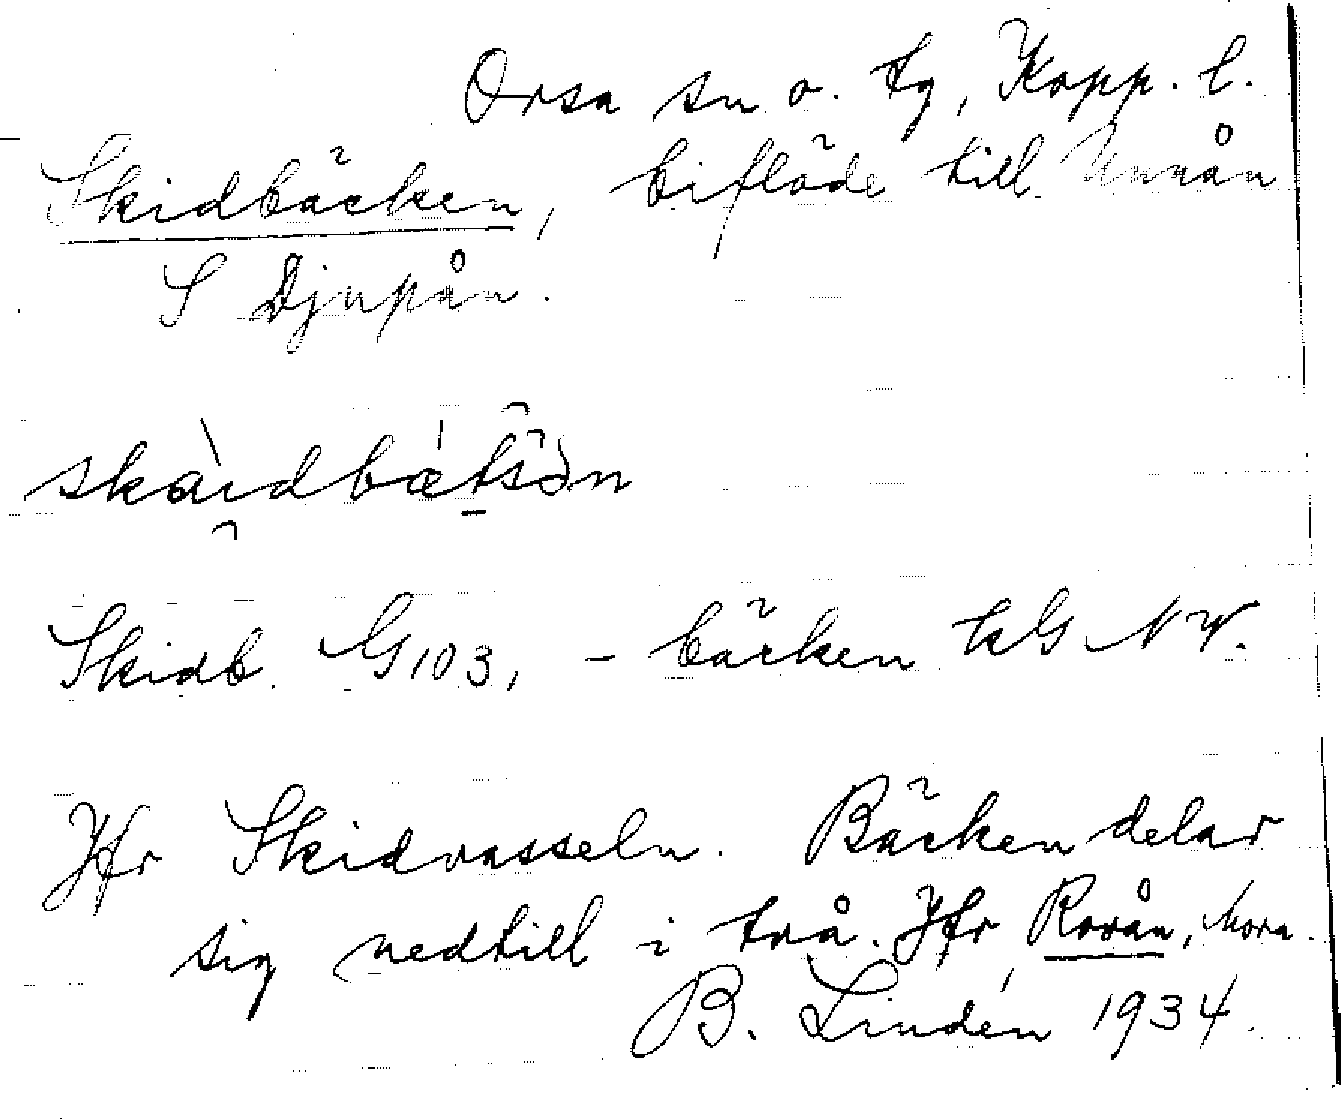 Orsa sn o. tg, Kopp. l.
Skidbäcken, biflöde till Unnån
S Djupån.
skàidbætsən
Skidb. G103, - bäcken kG NV.
Jfr Skidvasseln. Bäcken delar
sig nedtill i två. Jfr Rovån, Mora.
B. Lindén 1934.